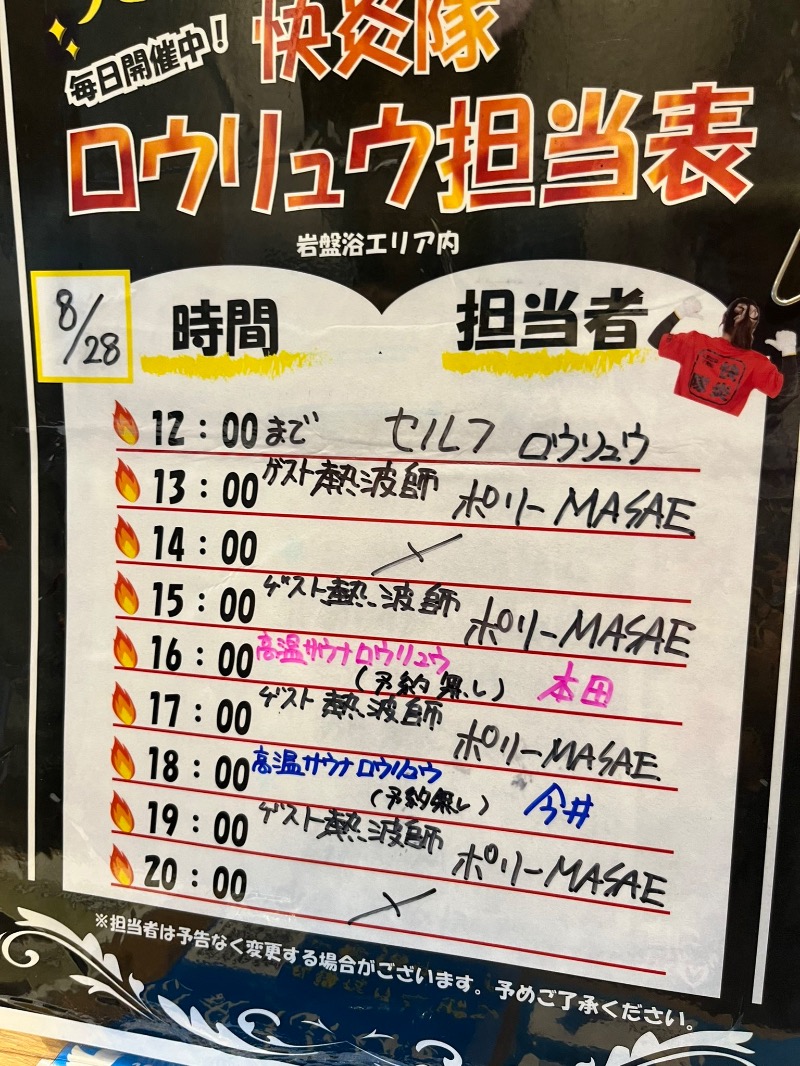 毎日開催中！
快炎隊
ロウリュウ担当表
岩盤浴エリア内
8/28
時間 担当者
12：00 まで セルフ ロウリュウ
13：00 ゲスト熱波師 ポリーMASAE
14：00 ×
15：00 ゲスト熱波師 ポリーMASAE
16：00 高温サウナロウリュウ
(予約無し) 本田
17：00 ゲスト熱波師 ポリーMASAE
18：00 高温サウナロウリュウ
(予約無し) 今井
19：00 ゲスト熱波師 ポリーMASAE
20：00 ×
※担当者は予告なく変更する場合がございます。予めご了承ください。